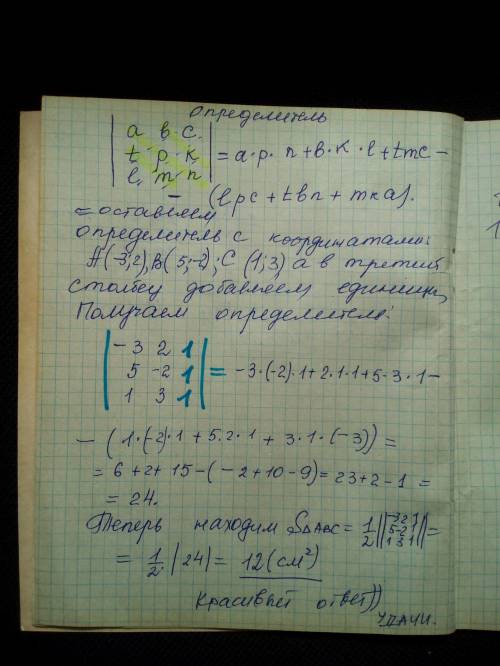 определитель
| a в c. |
| t p. к | = a·p· n + в·к·l + tmc −
| l, m, n |
− (lpc + tвn + mкa).
=оставляем
определитель с координатами:
A(-3;2), B(5;-2); C (1;3) а в третий
столбец добавляем единицы,
Получаем определитель:
| -3 2 1 |
| 5 -2 1 | = -3·(-2)·1+2·1·1+5·3·1−
| 1 3 1 |
− (1·(-2)·1 + 5·2·1 + 3·1·(-3)) =
= 6+2+15−(-2+10-9)= 23+2−1 =
= 24.
Теперь находим S∆ABC = 1/2 ||-3 2 1 5 -2 1 1 3 1|| =
= 1/2 |24| = 12 (см²)
Красивый ответ))
Удачи.